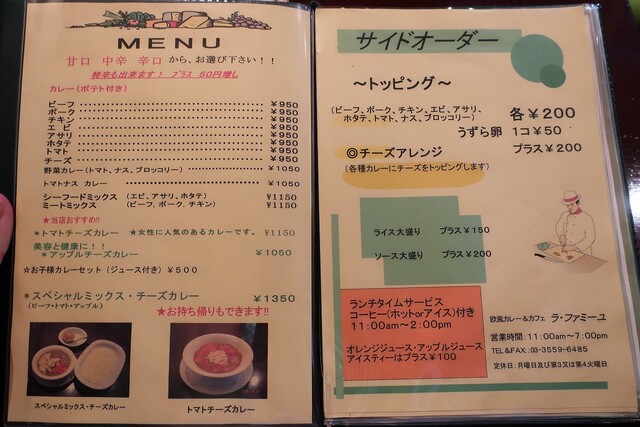 MENU
甘口 中辛 辛口 から、お選び下さい！！
特辛も出来ます！ プラス 50円増し
カレー(ポテト付き)
ビーフ ¥950
ポーク ¥950
チキン ¥950
エビ ¥950
アサリ ¥950
ホタテ ¥950
トマト ¥950
チーズ ¥950
野菜カレー(トマト、ナス、ブロッコリー) ¥1050
トマトナス カレー ¥1050
シーフードミックス (エビ、アサリ、ホタテ) ¥1150
ミートミックス (ビーフ、ポーク、チキン) ¥1150
★当店おすすめ!!
＊トマトチーズカレー ★女性に人気のあるカレーです。 ¥1150
美容と健康に！！
＊アップルチーズカレー ¥1050
☆お子様カレーセット (ジュース付き) ¥500
＊スペシャルミックス・チーズカレー ¥1350
(ビーフ・トマト・アップル)
★お持ち帰りもできます!!
スペシャルミックス・チーズカレー
トマトチーズカレー
サイドオーダー
～トッピング～
(ビーフ、ポーク、チキン、エビ、アサリ、
ホタテ、トマト、ナス、ブロッコリー) 各¥200
うずら卵 1コ¥50
◎チーズアレンジ プラス¥200
(各種カレーにチーズをトッピングします)
ライス大盛り プラス¥150
ソース大盛り プラス¥200
ランチタイムサービス
コーヒー(ホットorアイス)付き
11:00am～2:00pm
オレンジジュース・アップルジュース
アイスティーはプラス¥100
欧風カレー&カフェ ラ・ファミーユ
営業時間:11:00am～7:00pm
TEL&FAX:03-3559-6485
定休日:月曜日及び第3又は第4火曜日